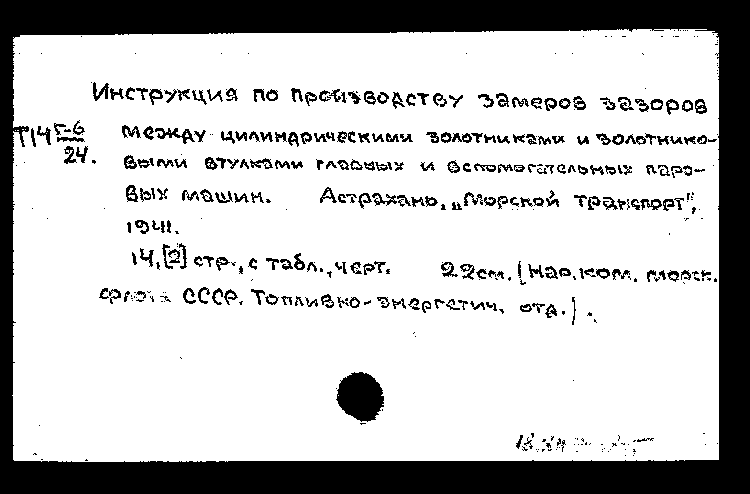 Инструкция по производству замеров зазоров
Т14 Г-6/24. между цилиндрическими золотниками и золотнико-
выми втулками главных и вспомогательных паро-
вых машин. Астрахань, „Морской транспорт",
1941.
14, [2] стр., с табл., черт. 22см. (Нар. ком. морск.
флота СССР. Топливно-энергетич. отд.).